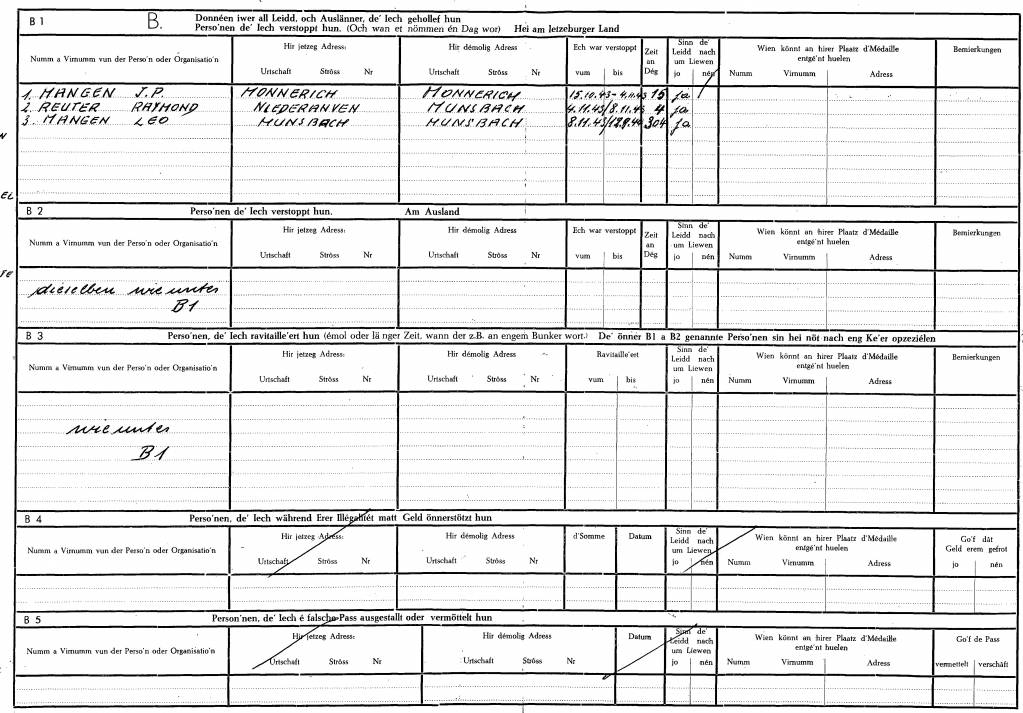 B 1 B. Donnéen iwer all Leidd, och Auslänner, de' Iech gehollef hun
Perso'nen de' Iech verstoppt hun. (Och wan et nömmen én Dag wor) Hei am letzeburger Land
Numm a Virnumm vun der Perso'n oder Organisatio'n
Hir jetzeg Adress:
Urtschaft Ströss Nr
Hir démolig Adress
Urtschaft Ströss Nr
Ech war verstoppt
vum bis
Zeit an Dég
Sinn de' Leidd nach um Liewen
jo nén
Wien könnt an hirer Plaatz d'Médaille entgé'nt huelen
Numm Virnumm Adress
Bemierkungen
1. MANGEN J.P. MONNERICH MONNERICH 15.10.43-4.11.43 15 ja
2. REUTER RAYMOND NIEDERANVEN MUNSBACH 4.11.43/8.11.43 4 ja
3. MANGEN LEO MUNSBACH MUNSBACH 304 ja
N
EL
B 2 Perso'nen de' Iech verstoppt hun. Am Ausland
Numm a Virnumm vun der Perso'n oder Organisatio'n
Hir jetzeg Adress:
Urtschaft Ströss Nr
Hir démolig Adress
Urtschaft Ströss Nr
Ech war verstoppt
vum bis
Zeit an Dég
Sinn de' Leidd nach um Liewen
jo nén
Wien könnt an hirer Plaatz d'Médaille entgé'nt huelen
Numm Virnumm Adress
Bemierkungen
TE
dieselben wie unter
B1
B 3 Perso'nen, de' Iech ravitaille'ert hun (émol oder lä nger Zeit, wann der z.B. an engem Bunker wort.) De' önner B1 a B2 genannte Perso'nen sin hei nöt nach eng Ke'er opzeziélen
Numm a Virnumm vun der Perso'n oder Organisatio'n
Hir jetzeg Adress:
Urtschaft Ströss Nr
Hir démolig Adress
Urtschaft Ströss Nr
Ravitaille'ert
vum bis
Sinn de' Leidd nach um Liewen
jo nén
Wien könnt an hirer Plaatz d'Médaille entgé'nt huelen
Numm Virnumm Adress
Bemierkungen
wie unter
B1
B 4 Perso'nen, de' Iech während Erer Illégalitét matt Geld önnerstötzt hun
Numm a Virnumm vun der Perso'n oder Organisatio'n
Hir jetzeg Adress:
Urtschaft Ströss Nr
Hir démolig Adress
Urtschaft Ströss Nr
d'Somme
Datum
Sinn de' Leidd nach um Liewen
jo nén
Wien könnt an hirer Plaatz d'Médaille entgé'nt huelen
Numm Virnumm Adress
Go'f dât Geld erem gefrot
jo nén
B 5 Person'nen, de' Iech é falsche Pass ausgestallt oder vermöttelt hun
Numm a Virnumm vun der Perso'n oder Organisatio'n
Hir jetzeg Adress:
Urtschaft Ströss Nr
Hir démolig Adress
Urtschaft Ströss Nr
Datum
Sinn de' Leidd nach um Liewen
jo nén
Wien könnt an hirer Plaatz d'Médaille entgé'nt huelen
Numm Virnumm Adress
Go'f de Pass
vermettelt verschäft